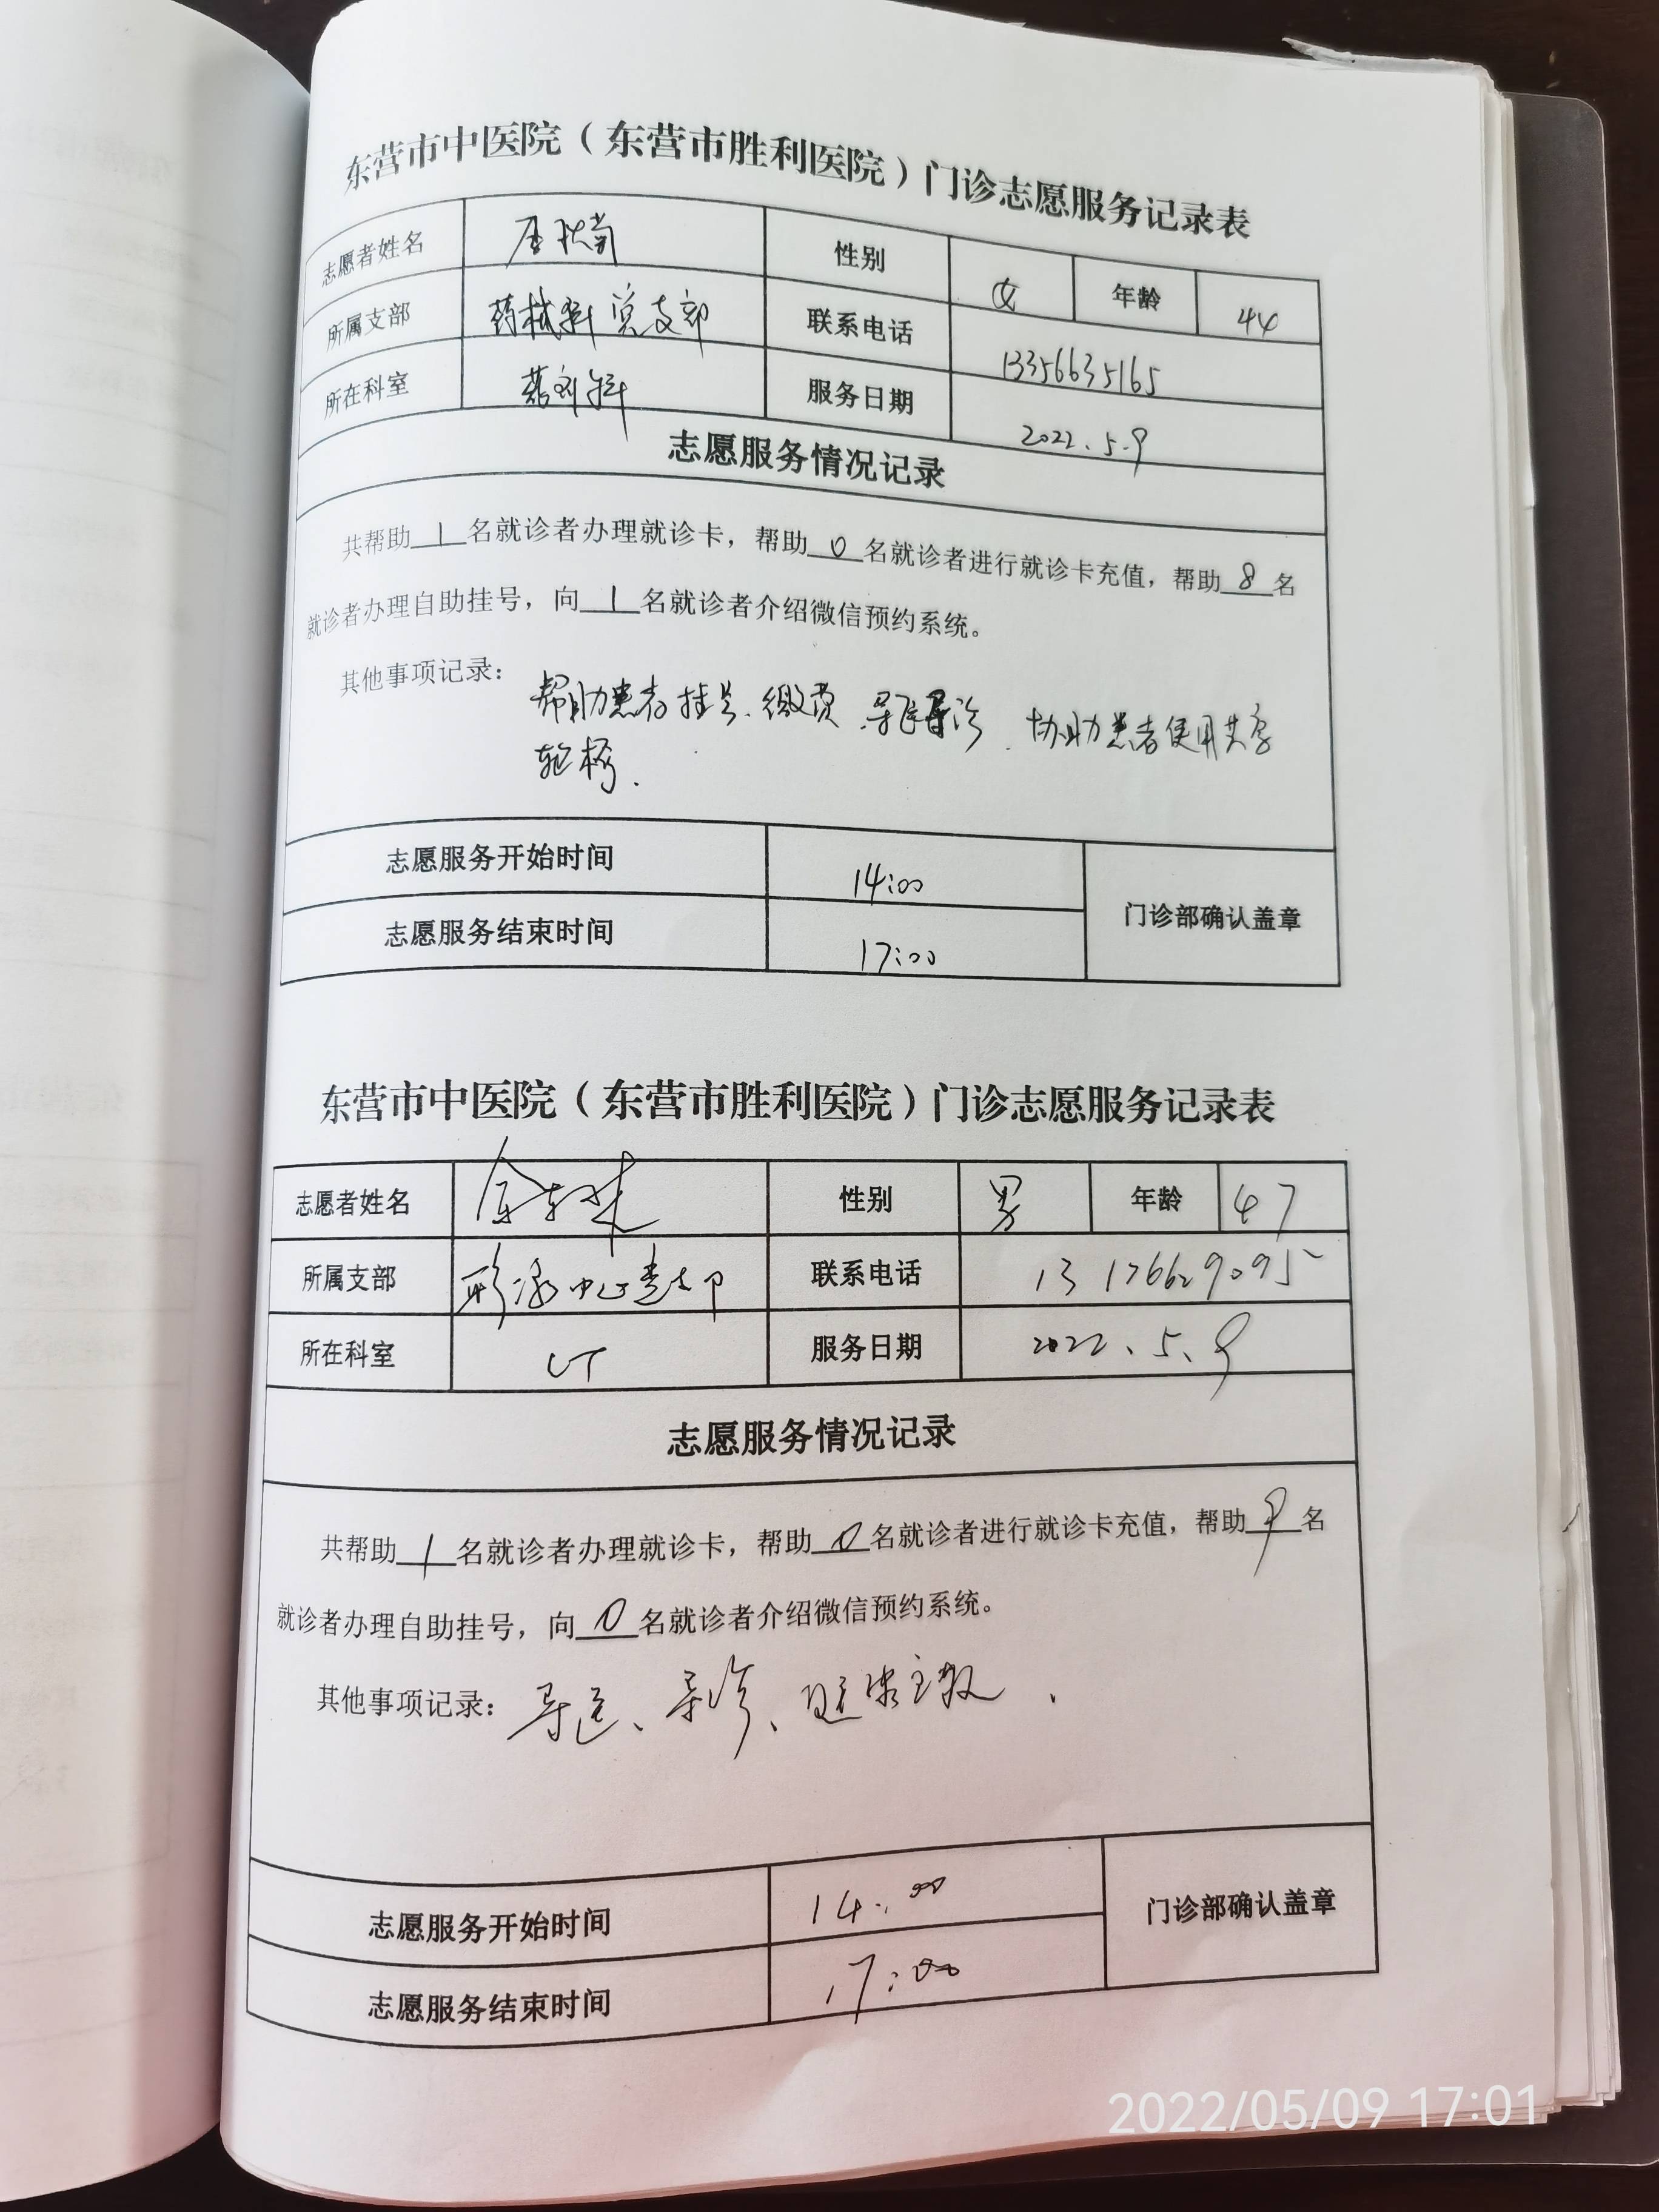 东营市中医院（东营市胜利医院）门诊志愿服务记录表
志愿者姓名 性别 女 年龄 44
所属支部 药械科党支部 联系电话 13356635165
所在科室 药剂科 服务日期 2022.5.9
志愿服务情况记录
共帮助1名就诊者办理就诊卡，帮助0名就诊者进行就诊卡充值，帮助8名
就诊者办理自助挂号，向1名就诊者介绍微信预约系统。
其他事项记录：帮助患者挂号、缴费、导医导诊、协助患者使用共享
轮椅.
志愿服务开始时间 14:00 门诊部确认盖章
志愿服务结束时间 17:00
东营市中医院（东营市胜利医院）门诊志愿服务记录表
志愿者姓名 性别 男 年龄 47
所属支部 联系电话 13176629095
所在科室 CT 服务日期 2022、5、9
志愿服务情况记录
共帮助1名就诊者办理就诊卡，帮助0名就诊者进行就诊卡充值，帮助9名
就诊者办理自助挂号，向0名就诊者介绍微信预约系统。
其他事项记录：导医、导诊、健康宣教.
志愿服务开始时间 14:00 门诊部确认盖章
志愿服务结束时间 17:00
2022/05/09 17:01